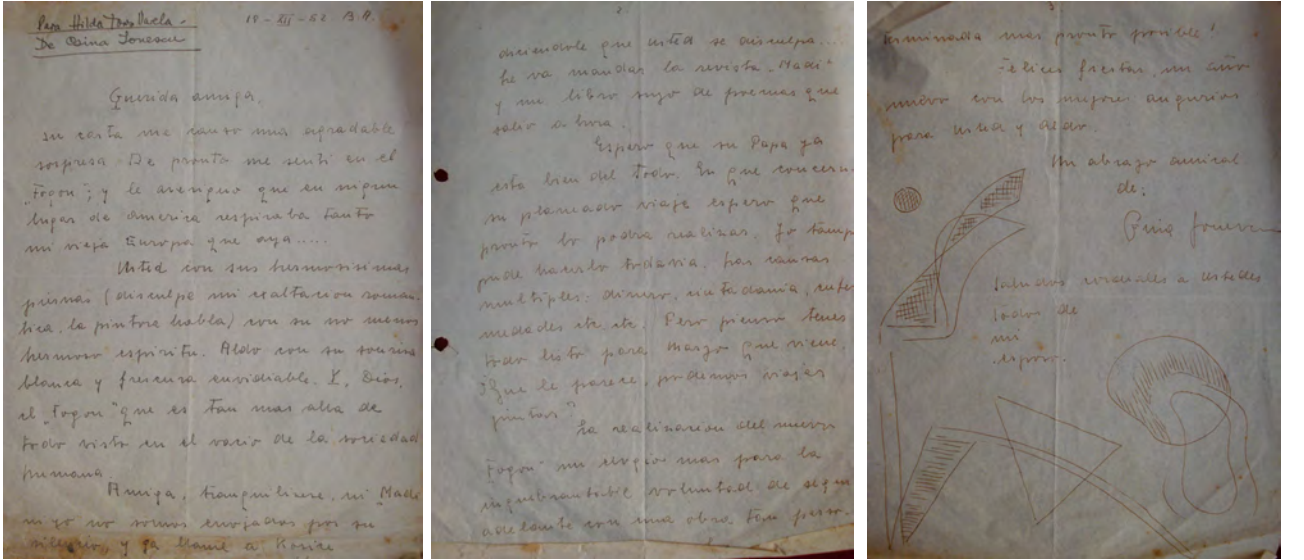 Para Hilda Torres Varela -
De Qüina Ionescu
10-XII-52 B.A.
Querida amiga,
su carta me causo una agradable
sorpresa. De pronto me senti en el
"Fogon"; y le aseguro que en nigun
lugar de America respiraba tanto
mi vieja Europa que aya.....
Usted con sus hermosisimas
piernas (disculpe mi exaltacion roman-
tica, la pintora habla) con su no menos
hermoso espiritu. Aldo con su sonrisa
blanca y frescura envidiable. Y, Dios,
el "Fogon" que es tan mas alla de
todo visto en el vacio de la sociedad
humana.
Amiga, tranquilizese, ni Madi
ni yo no somos enojados por su
silencio, y ya llame a Kosice
2.
diciendole que usted se disculpa....
Le va mandar la revista "Madi"
y un libro suyo de poemas que
salio ahora.
Espero que su Papa ya
esta bien del todo. En que concern.
su planeado viaje espero que
pronto lo podra realizar. Yo tamp
pude hacerlo todavia. Las causas
multiples: dinero, ciutadania, enfer
medades etc. etc. Pero pienso tener
todo listo para marzo que viene.
Que le parece, podemos viajar
juntas?
La realisacion del nuevo
"Fogon" un elogio mas para la
inquebrantable voluntad de segui
adelante con una obra tan perso-
3
terminada mas pronto possible!
Felices fiestas, un año
nuevo con los mejores augurios
para usted y Aldo.
Un abrazo amical
de:
Saludos cordiales a ustedes
todos de
mi
esposo.